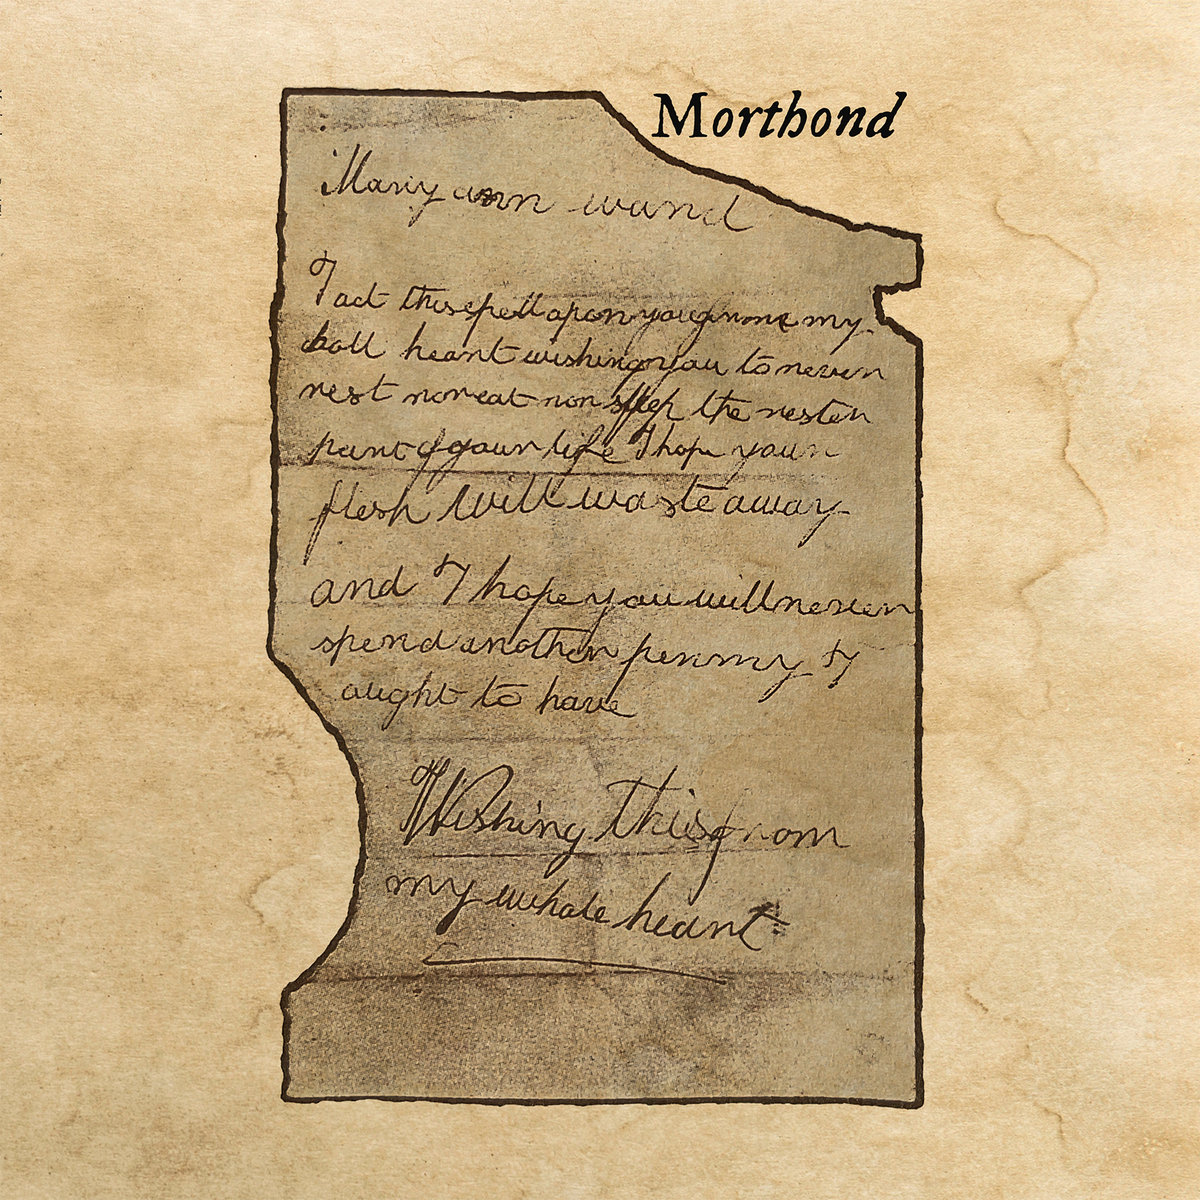 Morthond
Mary ann wand
I act this spell apon you from my
holl heart wishing you to never
rest nor eat nor sleep the rester
part of your life I hope your
flesh will waste away
and I hope you will never
spend another penny I
ought to have
Wishing this from
my whole heart